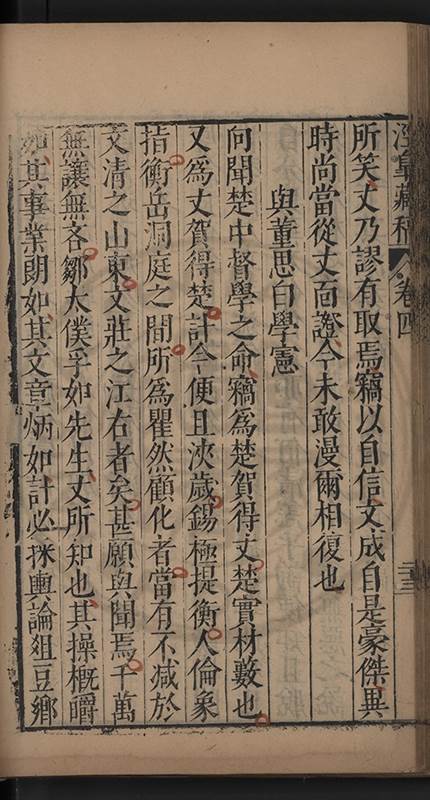 涇臯藏稿 卷四
所笑丈乃謬有取焉竊以自信文成自是豪傑異
時尚當從丈面證今未敢漫爾相復也
與董思白學憲
向聞楚中督學之命竊爲楚賀得丈楚實材藪也
又爲丈賀得楚計今便且浹歲錫極提衡人倫象
指衡岳洞庭之間所爲瞿然顧化者當有不减於
文清之山東文莊之江右者矣甚願與聞焉千萬
無讓無吝鄒太僕孚如先生丈所知也其操概皭
如其事業朗如其文章炳如計必採輿論俎豆鄉